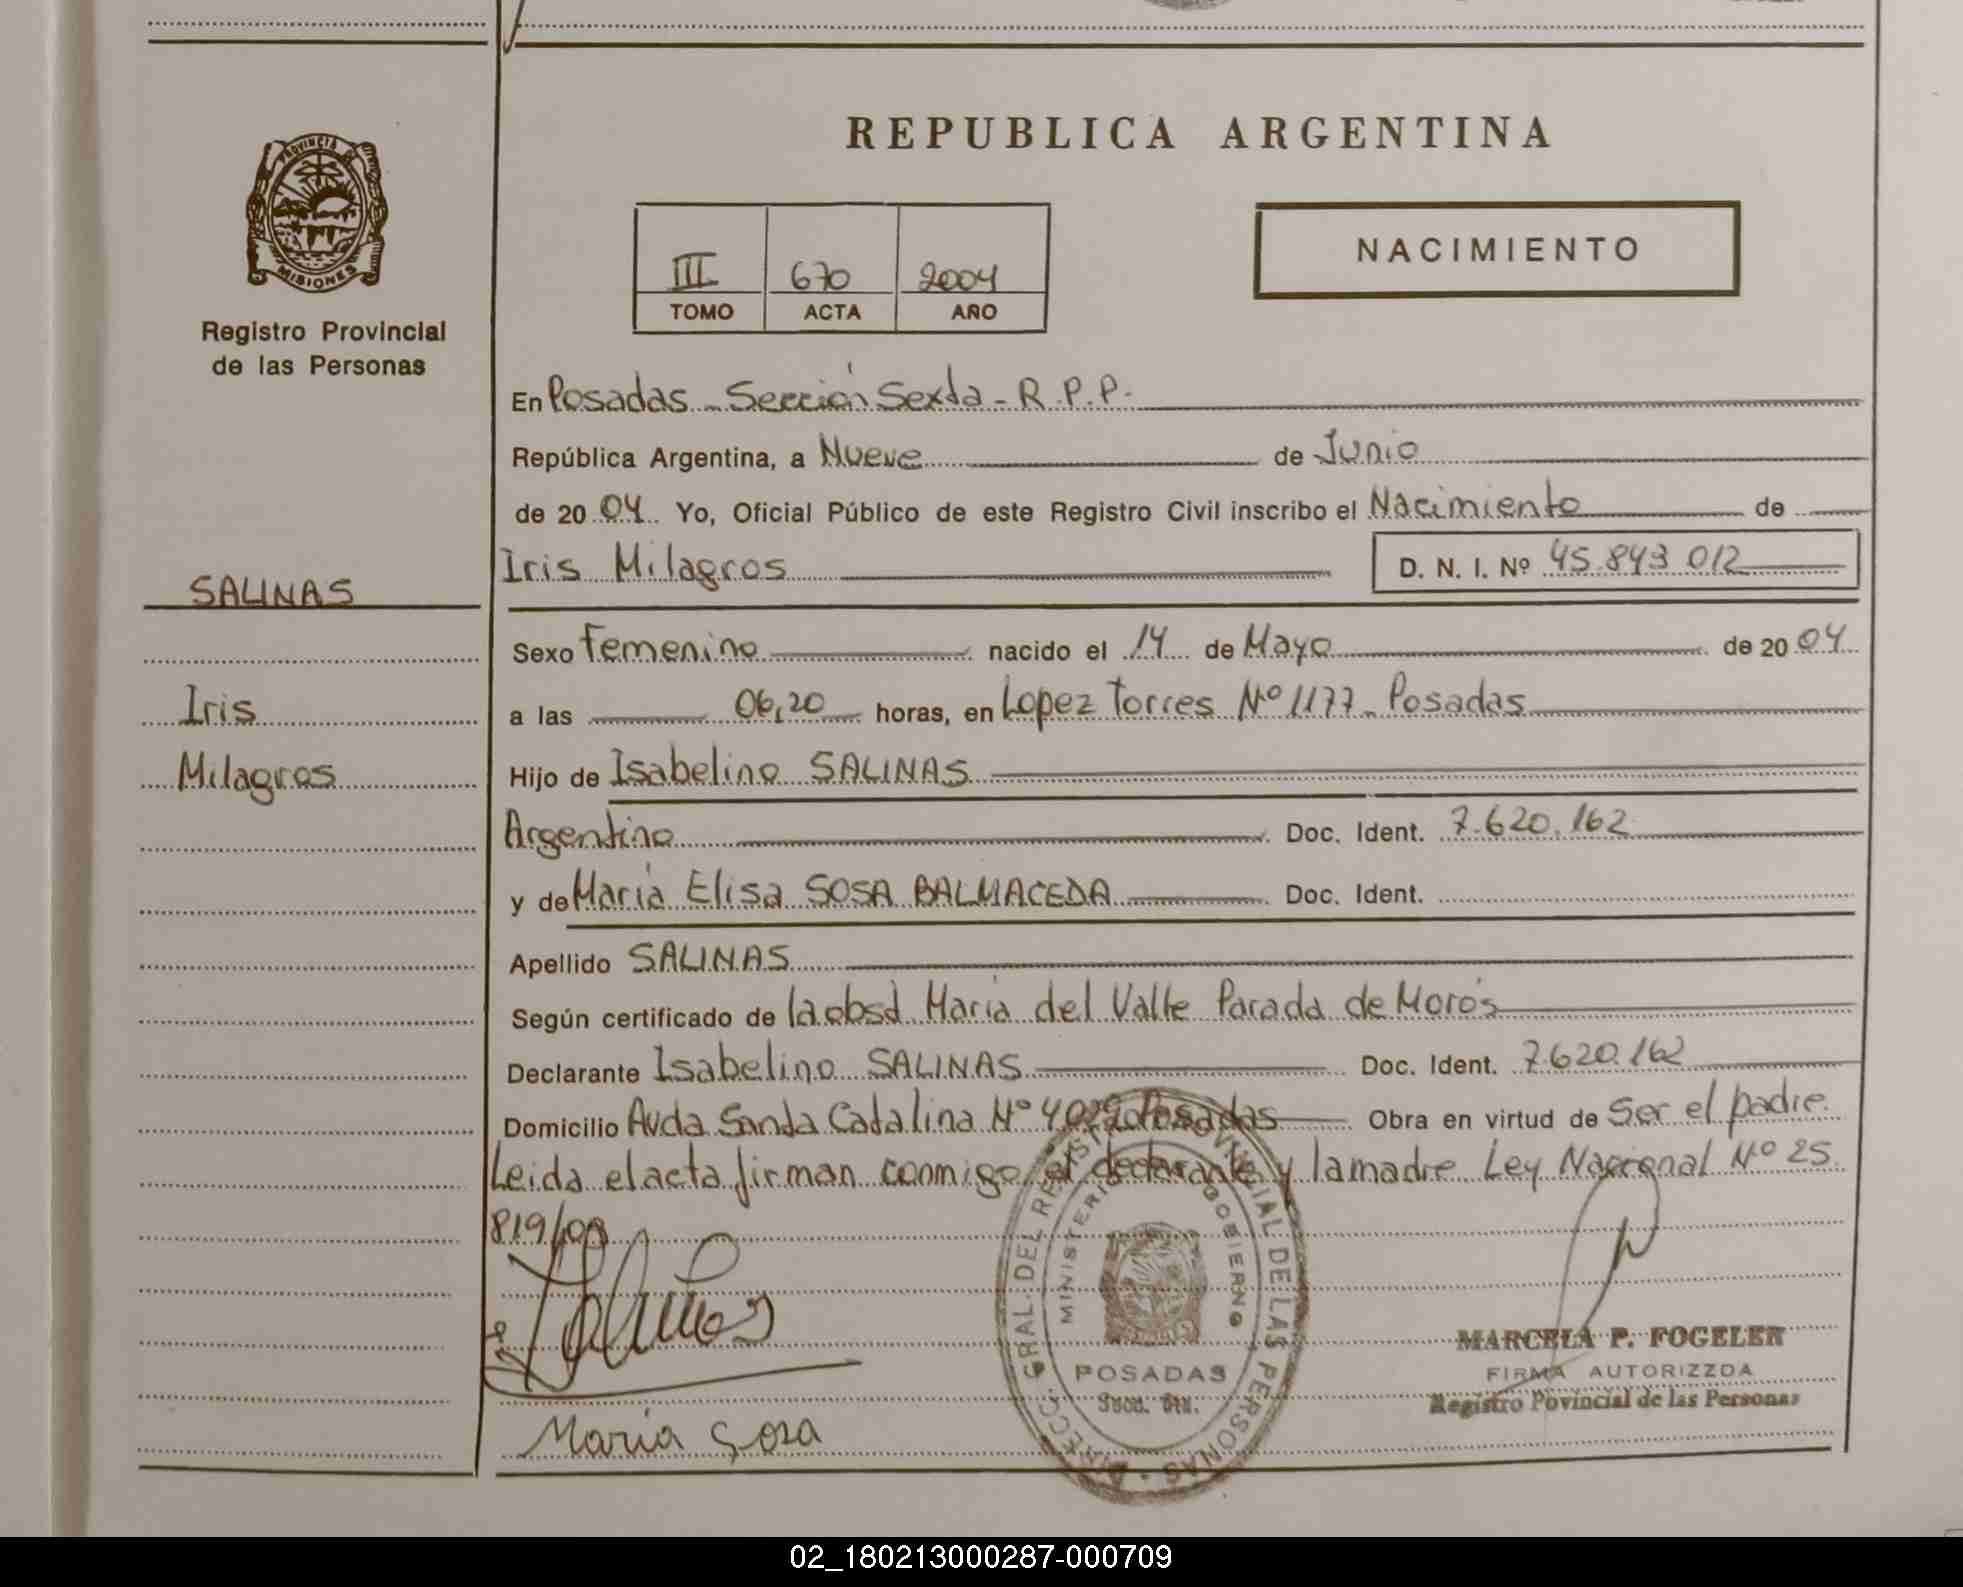 REPUBLICA ARGENTINA
PROVINCIA DE
MISIONES
Registro Provincial
de las Personas
III 670 2004
TOMO ACTA AÑO
NACIMIENTO
En Posadas - Sección Sexta - R.P.P.
República Argentina, a Nueve de Junio
de 2004 Yo, Oficial Público de este Registro Civil inscribo el Nacimiento de
Iris Milagros D. N. I. Nº 45.843.012
SALINAS
Iris
Milagros
Sexo Femenino nacido el 14 de Mayo de 2004
a las 06,20 horas, en Lopez Torres Nº 1177 - Posadas
Hijo de Isabelino SALINAS
Argentino Doc. Ident. 7.620.162
y de María Elisa SOSA BALMACEDA Doc. Ident.
Apellido SALINAS
Según certificado de la obsd María del Valle Parada de Moros
Declarante Isabelino SALINAS Doc. Ident. 7.620.162
Domicilio Avda Santa Catalina Nº Posadas Obra en virtud de Ser el padre.
Leida el acta firman conmigo el declarante y la madre Ley Nacional Nº 25.
819/03
DIRECC. GRAL. DEL REGISTRO PROVINCIAL DE LAS PERSONAS
MINISTERIO GOBIERNO
POSADAS
MARCELA P. FOGELER
FIRMA AUTORIZZDA
Registro Povincial de las Personas
María Sosa
02_180213000287-000709